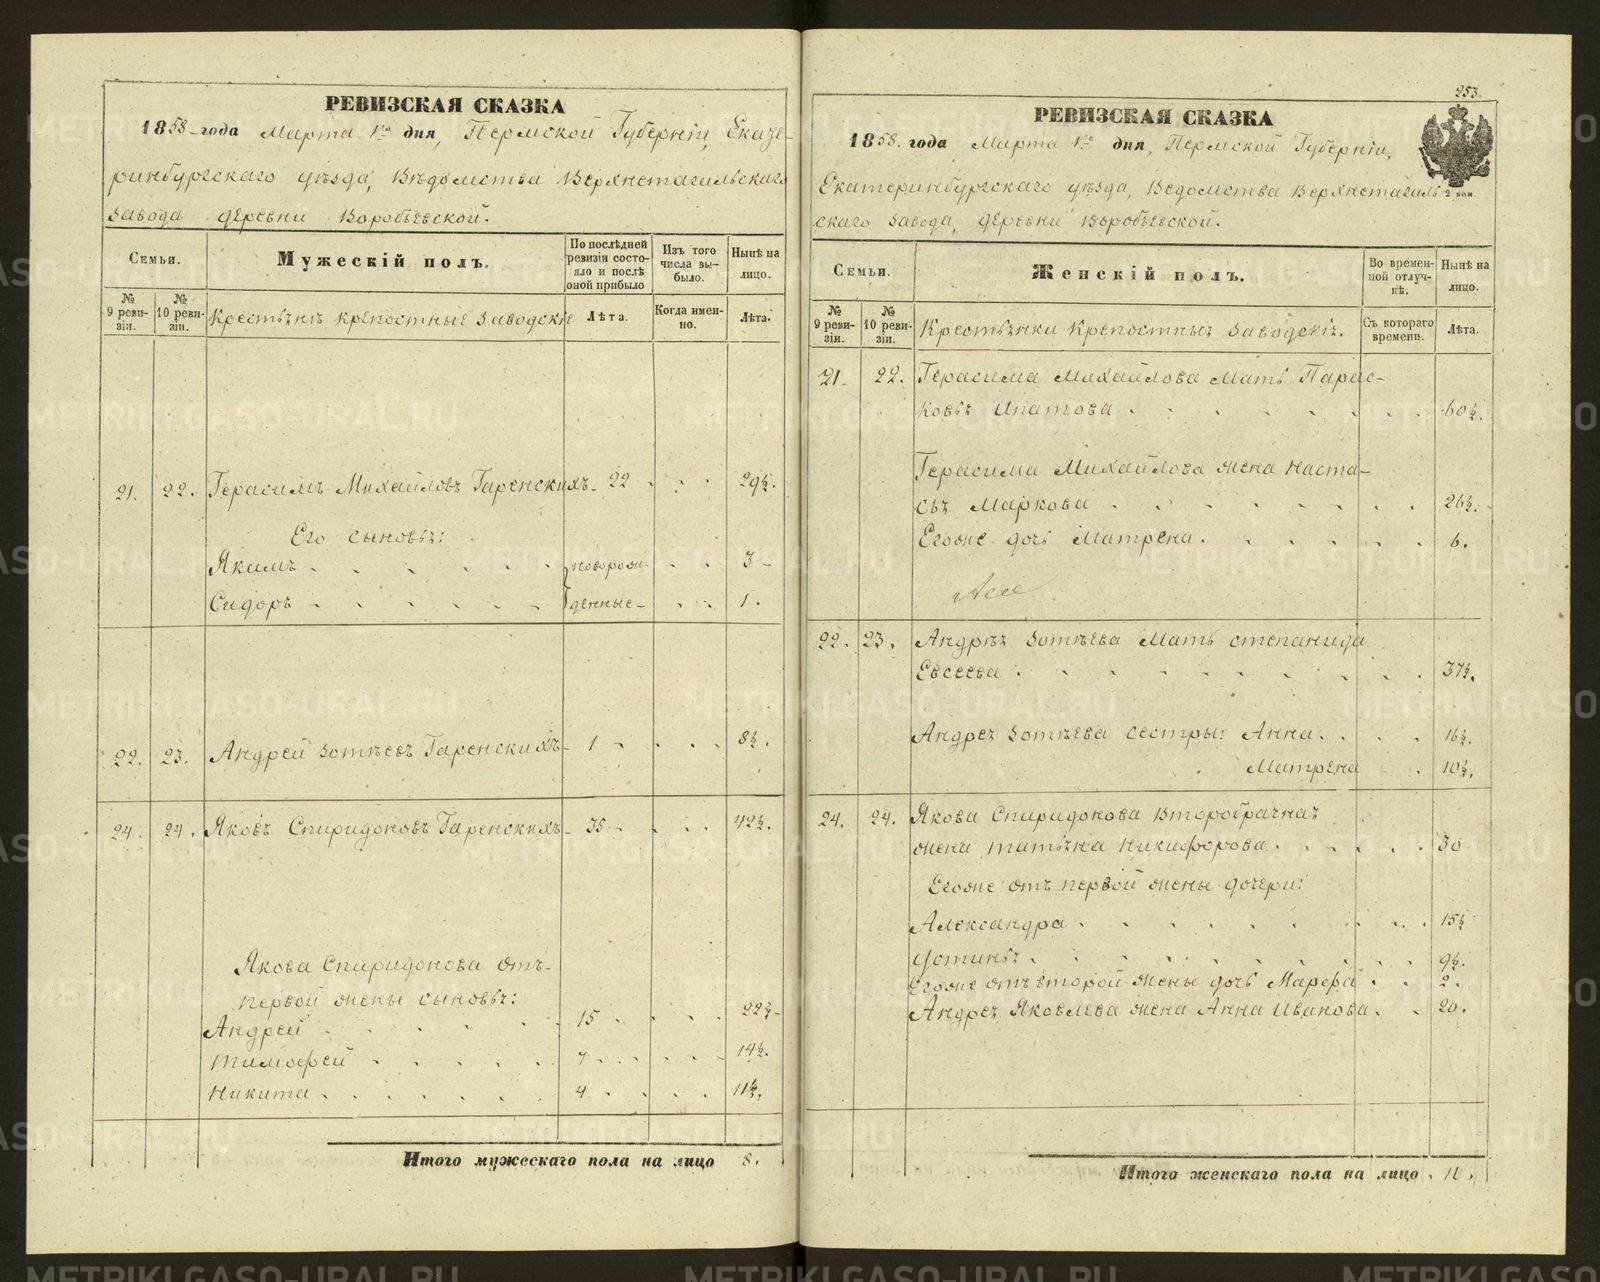 РЕВИЗСКАЯ СКАЗКА
1858 года Марта 1го дня, Пермской Губерніи, Екате-
ринбургскаго уѣзда, Вѣдомства Верхнетагильскаго
завода деревни Воробьевской.
Семьи.
Мужескій полъ.
По послѣдней ревизіи состояло и послѣ оной прибыло
Изъ того числа выбыло.
Нынѣ на лицо.
№ 9 ревизіи.
№ 10 ревизіи.
Крестьяне крепостные заводскіе
Лѣта.
Когда именно.
Лѣта.
21. 22. Герасимъ Михайловъ Гаренскихъ 22 29½.
Его сыновья:
Якимъ новорож- 3
Сидоръ денные 1.
22. 23. Андрей Зотѣевъ Гаренскихъ 1 8½.
24. 24. Яковъ Спиридоновъ Гаренскихъ 35 42½.
Якова Спиридонова отъ
первой жены сыновья:
Андрей 15 22½
Тимофей 7 14½.
Никита 4 11½.
Итого мужескаго пола на лицо 8.
253.
РЕВИЗСКАЯ СКАЗКА
1858. года Марта 1го дня, Пермской Губерніи,
Екатеринбургскаго уѣзда, Ведомства Верхнетагиль-
2 коп.
скаго завода, деревни Воробьевской.
Семьи.
Женскій полъ.
Во временной отлучкѣ.
Нынѣ на лицо.
№ 9 ревизіи.
№ 10 ревизіи.
Крестьянки крепостныя заводскія.
Съ котораго времени.
Лѣта.
21. 22. Герасима Михайлова Мать Парас-
ковья Ипатова 60½.
Герасима Михайлова жена Наста-
сья Маркова 26½.
Егоже дочь Матрена 6.
22. 23. Андрея Зотѣева Мать Степанида
Евсеева 37½.
Андрея Зотѣева сестры: Анна 16½.
Матрена 10½.
24. 24. Якова Спиридонова второбрачная
жена Татьяна Никифорова 30
Егоже отъ первой жены дочери:
Александра 15½
Устинья 9½.
Егоже отъ второй жены дочь Марфа 2.
Андрея Яковлева жена Анна Иванова 20.
Итого женскаго пола на лицо 11.
METRIKI.GASO-URAL.RU